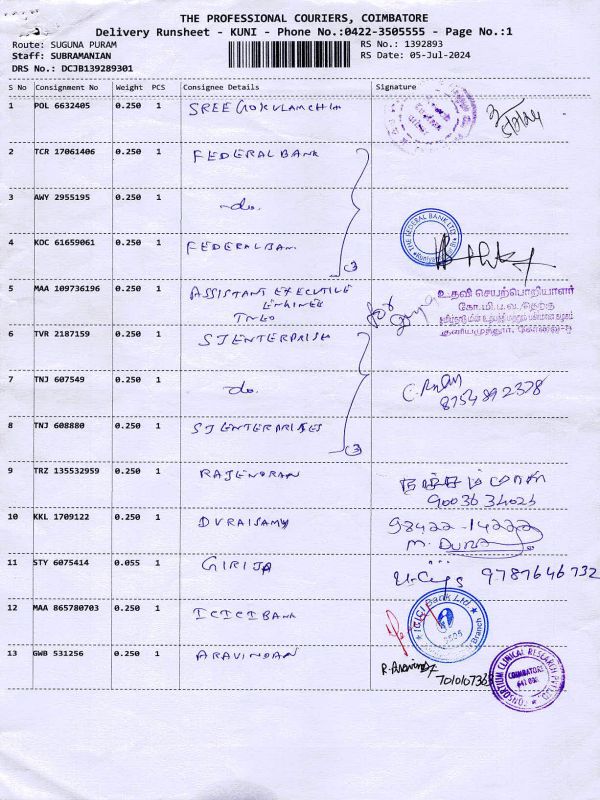 THE PROFESSIONAL COURIERS, COIMBATORE
Delivery Runsheet - KUNI - Phone No.:0422-3505555 - Page No.:1
Route: SUGUNA PURAM RS No.: 1392893
Staff: SUBRAMANIAN RS Date: 05-Jul-2024
DRS No.: DCJB139289301
S No Consignment No Weight PCS Consignee Details Signature
1 POL 6632405 0.250 1 SREE GOKULAM CHIT
2 TCR 17061406 0.250 1 FEDERAL BANK
3 AWY 2955195 0.250 1 -do.
THE FEDERAL BANK LTD
4 KOC 61659061 0.250 1 FEDERAL BAN
3
5 MAA 109736196 0.250 1 ASSISTANT EXECUTIVE உதவி செயற்பொறியாளர்
ENGINEE for
TNEO
6 TVR 2187159 0.250 1 SJ ENTERPRISH
7 TNJ 607549 0.250 1 do.
8754892378
8 TNJ 608880 0.250 1 SJ ENTERPRISES
3
9 TRZ 135532959 0.250 1 RAJENDRAN
9003634026
10 KKL 1709122 0.250 1 DURAISAMY 98422-14222
M. DURAI
11 STY 6075414 0.055 1 GIRIJA 9787646732
12 MAA 865780703 0.250 1 ICICI BANK
ICICI Bank Ltd
Branch
13 GWB 531256 0.250 1 ARAVINDAN
R. Aravind
CONSORTIUM CLINICAL RESEARCH PVT LTD
COIMBATORE